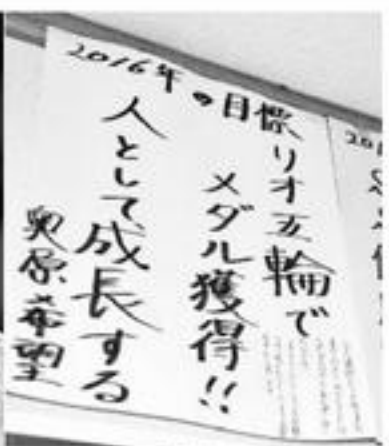 2016年の目標
リオ五輪で
メダル獲得!!
人として成長する
奥原希望